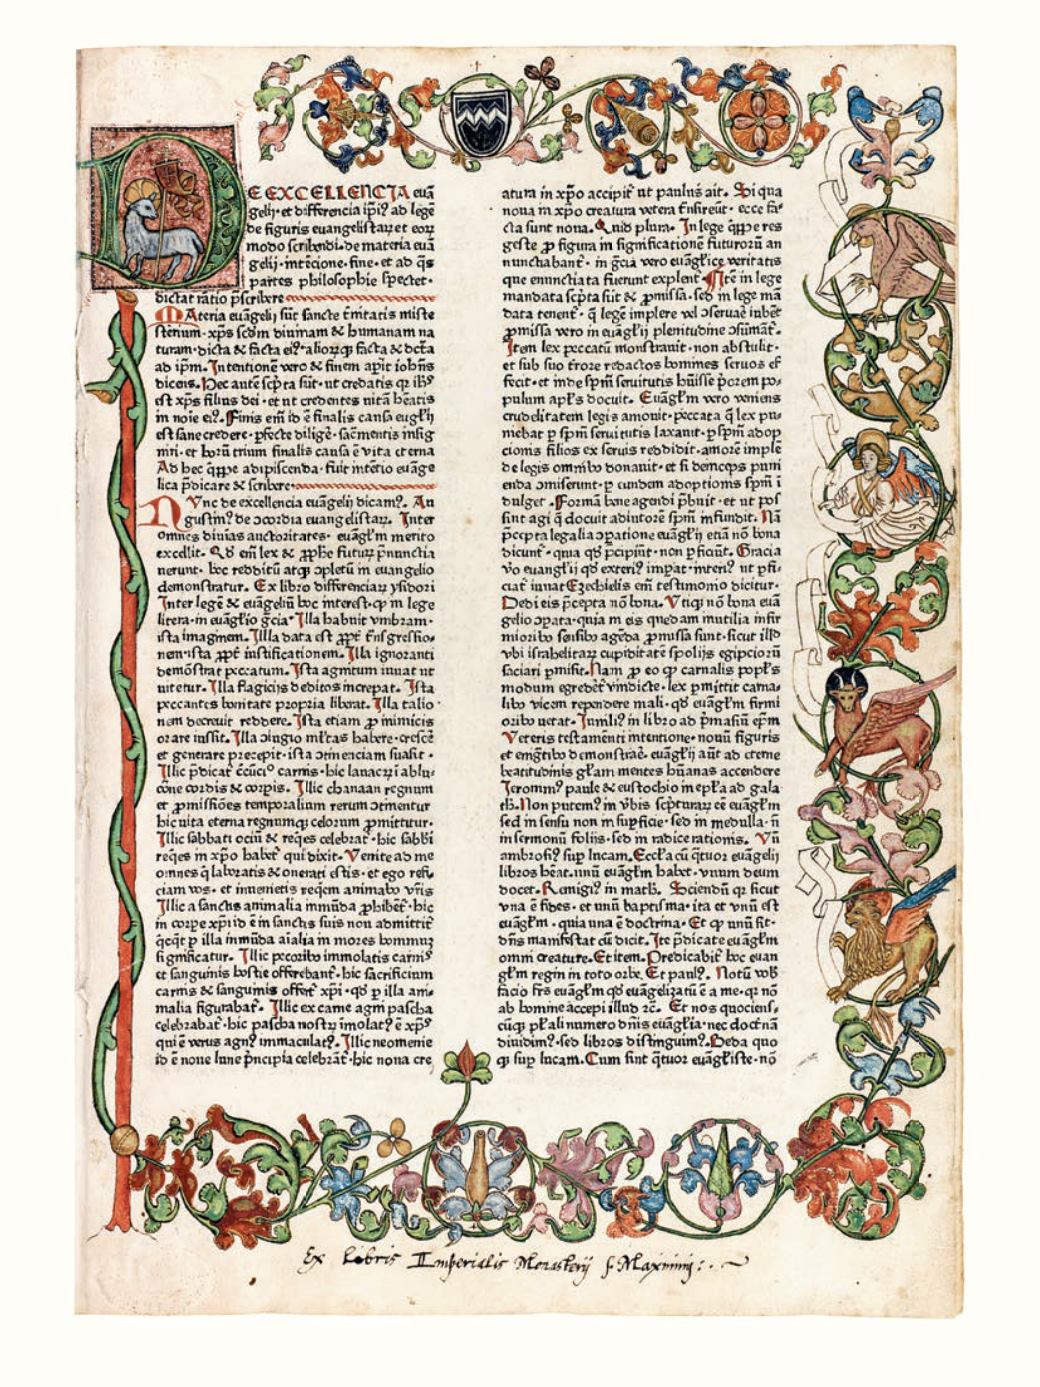 DE EXCELLENCIA euā
gelij·et differencia ip̄i⁹ ad legē
de figuris euangelistaꝝ et eoꝝ
modo scribendi·de materia euā
gelij·intēcione·fine·et ad q̄s
partes philosophie spectet·
dictat ratio p̄scribere
MAteria euāgelij sūt sancte t̄nitatis miste
sterium·xp̄s scd̄m diuinam & humanam na
turam·dicta & facta ei⁹·alioꝝqȝ facta & dc̄ta
ad ip̄m. Intentionē vero & finem ap̄it ioh̄ns
dicens. Hec autē scp̄ta sūt·ut credatis qꝛ ih̄s
est xp̄s filius dei·et ut credentes uitā h̄eatis
in noīe ei⁹. Finis em̄ id ē finalis causa eūgl̄ij
est sane credere·ꝑfecte diligē·sac̄mentis insig
niri·et hoꝝ trium finalis causa ē vita eterna
Ad hec q̄ꝑpe adipiscenda·fuit intētio euāge
lica p̄dicare & scribere
NVnc de excellencia euāgelij dicam⁹. Au
gustin⁹ de ɔcordia euangelistaꝝ. Inter
omnes diuinas auctoritates·euāgl̄m merito
excellit. Qd̄ em̄ lex & ꝓphe futuꝝ p̄nunctia
uerunt·hoc redditū atqȝ ɔpletū in euangelio
demonstratur. Ex libro differenciaꝝ ysidori
Inter legē & euāgeliū hoc interest·qꝙ in lege
litera·in euāgl̄io gr̄cia· Illa habuit vmbram·
ista imaginem. Illa data est ꝓpt̄ t̄nsgressio-
nem·ista ꝓpt̄ iustificationem. Illa ignoranti
demōstrat peccatum. Ista agnitum iuuat ut
uitetur. Illa flagicijs deditos increpat. Ista
peccantes bonitate propria liberat. Illa talio·
nem decreuit reddere. Ista etiam ꝓ inimicis
orare iussit. Illa ɔiugio ml̄tas habere·crescē
et generare precepit·ista ɔtinenciam suasit·
Illic p̄dicat̄ circūcisio carnis·hic lauacrū ablu-
cōne cordis & corpis. Illic chanaan regnum
et ꝓmissiōes temporalium rerum ɔtinentur
hic uita eterna regnumqȝ celorum ꝓmittitur·
Illic sabbati ociū & reqes celebrat̄·hic sabb̄i
reqes in xp̄o habet̄ qui dixit· Venite ad me
omnes q̄ laboratis & onerati estis·et ego refi-
ciam vos·et inuenietis reqem animabȝ vr̄is
Illic a sanctis animalia immūda ꝓhibet̄·hic
in corpe xp̄i id ē in sanctis suis non admittit̄
q̄cq̄t ꝑ illa inmūda aīalia in mores hominuȝ
significatur. Illic pecoribȝ immolatis carnis
et sanguinis hostie offerebant̄·hic sacrificium
carnis & sanguinis offert̄ xp̄i·qd̄ ꝑ illa ani-
malia figurabat̄. Illic ex carne agni pascha
celebrabat̄·hic pascha nostꝝ īmolat⁹ ē xp̄s
qui ē verus agn⁹ immaculat⁹. Illic neomenie
id ē noue lune p̄ncipia celebrāt̄·hic noua cre
atura in xp̄o accipit̄ ut paulus ait. Si qua
noua in xp̄o creatura vetera t̄nsireūt·ecce fa-
cta sunt noua. Quid plura. In lege q̄ꝑpe res
geste ꝓ figura in significationē futuroꝝ an
nunctiabant̄·in gr̄cia vero euāgl̄ice veritatis
que enunctiata fuerunt explent̄· Itē in lege
mandata scp̄ta sūt & ꝓmissa·sed in lege mā
data tenent̄·q̄ lege implere vel ɔseruare iubēt
ꝓmissa vero in euāgl̄ij plenitudine ɔsūmāt̄.
Item lex peccatū monstrauit·non abstulit·
et sub suo t̄rore redactos homines seruos ef
fecit·et inde sp̄m seruitutis h̄uisse p̄orem po-
pulum apl̄s docuit. Euāgl̄m vero veniens
crudelitatem legis amouit·peccata q̄ lex pu-
niebat ꝑ sp̄m seruitutis laxauit·ꝑ sp̄m adop
cionis filios ex seruis reddidit·amorē imple
de legis omnibȝ donauit·et si deinceps puni
enda ɔmiserunt·ꝑ eundem adoptionis sp̄m ī
dulget. Formā bone agendi p̄buit·et ut pos
sint agi q̄ docuit adiutorē sp̄m infundit. Nā
p̄cepta legalia ɔpatione euāgl̄ij etiā nō bona
dicunt̄·quia qd̄ p̄cipiūt·non ꝑficiūt. Gracia
vo euangl̄ij qd̄ exteri⁹ imꝑat·interi⁹ ut ꝑfi-
ciat̄ iuuat Ezechielis em̄ testimonio dicitur·
Dedi eis p̄cepta nō bona. Vtiqȝ nō bona euā
gelio ɔpata·quia in eis quedam inutilia infir
mioribȝ sēsibȝ agēda ꝓmissa sunt·sicut illd̄
vbi israhelitaꝝ cupiditatē spolijs egipcioꝝ
saciari ꝑmisit. Nam ꝓ eo qꝙ carnalis popl̄s
modum egredet̄ vindicte·lex ꝑmittit carna-
libȝ vicem rependere mali·qd̄ euāgl̄m firmi
oribȝ uetat. Iunili⁹ in libro ad p̄masiū ep̄m
Veteris testamēti intentione·nouū figuris
et enigm̄tibȝ demonstrare·euāgl̄ij aūt ad eterne
beatitudinis gl̄am mentes hūanas accendere
Ieronim⁹ paule & eustochio in epl̄a ad gala
th̄. Non putem⁹ in v̄bis scp̄turaꝝ eē euāgl̄m
sed in sensu non in suꝑficie·sed in medulla·n̄
in sermonū folijs·sed in radice rationis. Vn̄
ambrosi⁹ suꝑ lucam. Eccl̄a cū q̄tuor euāgelij
libros h̄eat·unū euāgl̄m habet·vnum deum
docet. Remigi⁹ in math̄. Sciendū qꝛ sicut
vna ē fides·et unū baptisma·ita et vnū est
euāgl̄m·quia una ē doctrina·Et qꝙ unū sit·
dn̄s manifestat cū dicit. Ite p̄dicate euāgl̄m
omni creature. Et item. Predicabit̄ hoc euan
gl̄m regni in toto orbe. Et paul⁹. Notū vob̄
facio fr̄s euāgl̄m qd̄ euāgelizatū ē a me·qꝛ nō
ab homine accepi illud ꝛc̄. Et nos quociens-
cūqȝ pl̄ali numero dm̄s euāgl̄ia·nec doct̄nā
diuidim⁹·sed libros distinguim⁹. Beda quo
qȝ suꝑ lucam. Cum sint q̄tuor euāgl̄iste·nō
Ex Libris Imperialis Monasterij S. Maximini: